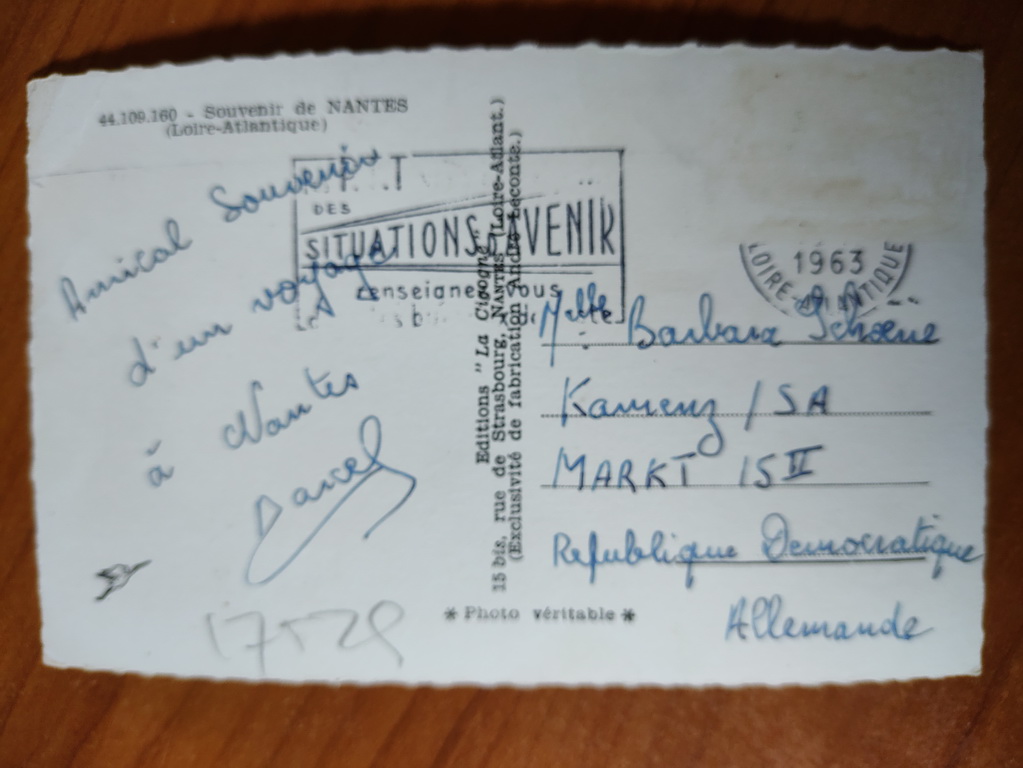 44.109.160 - Souvenir de NANTES
(Loire-Atlantique)
Amical Souvenir
d'un voyage
à Nantes
DES
SITUATIONS D'AVENIR
renseignez vous
Editions "La Cigogne"
15 bis, rue de Strasbourg, NANTES (Loire-Atlant.)
(Exclusivité de fabrication André Leconte.)
* Photo véritable *
1963
LOIRE-ATLANTIQUE
Melle Barbara Schoene
Kamenz / SA
MARKT 15 II
Republique Democratique
Allemande